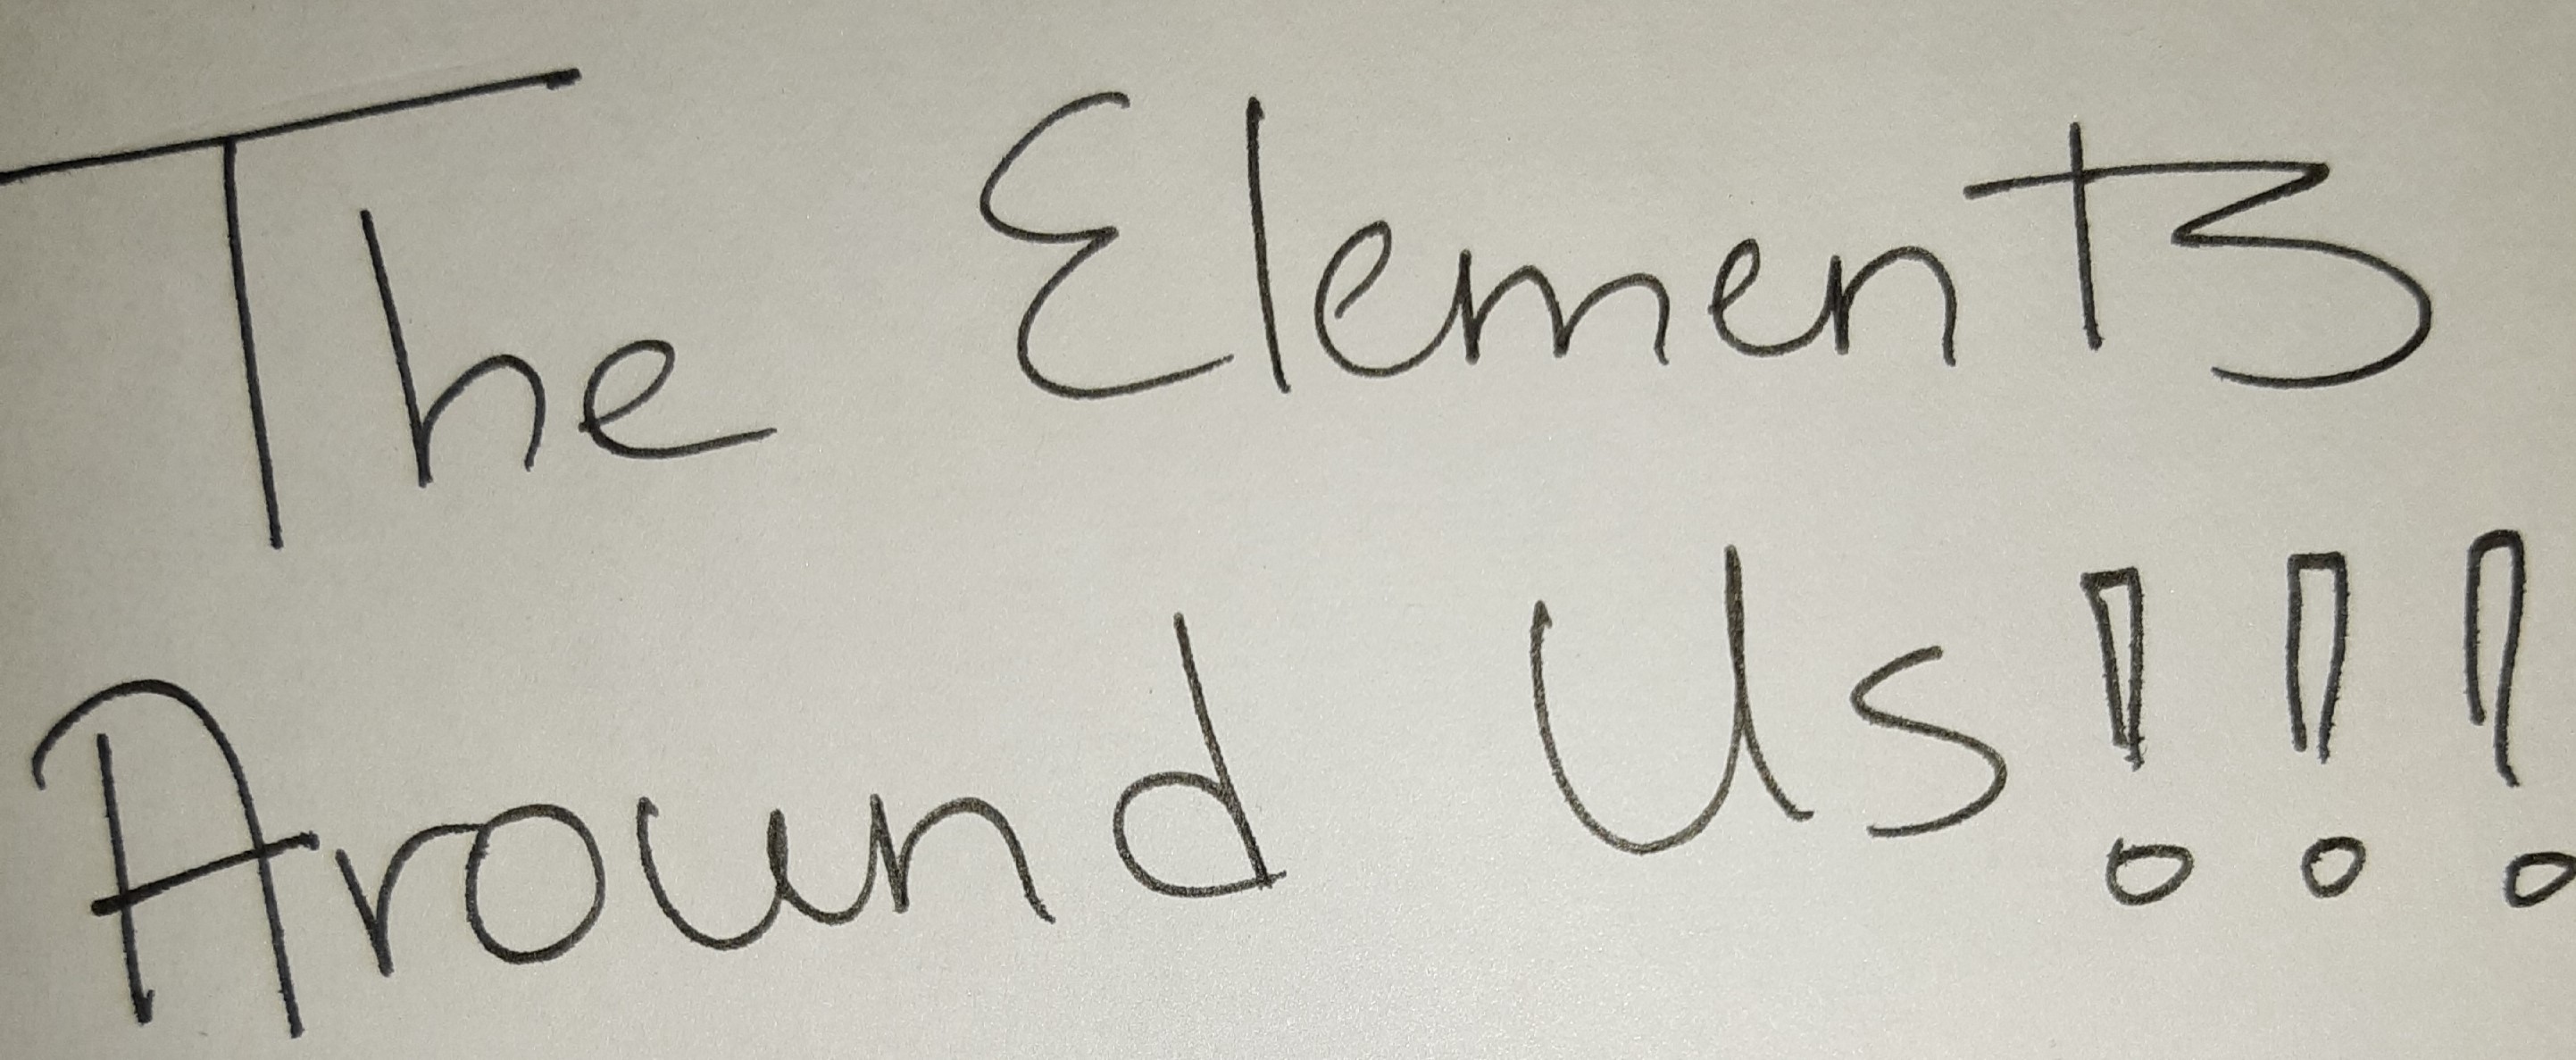 The Elements
Around Us!!!